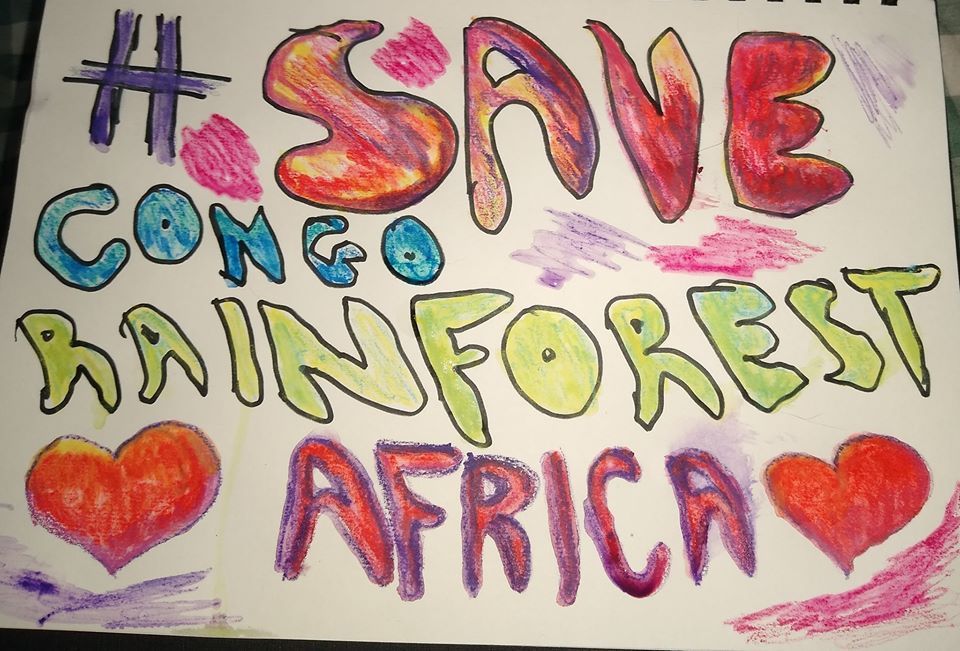 # SAVE
CONGO
RAINFOREST
AFRICA